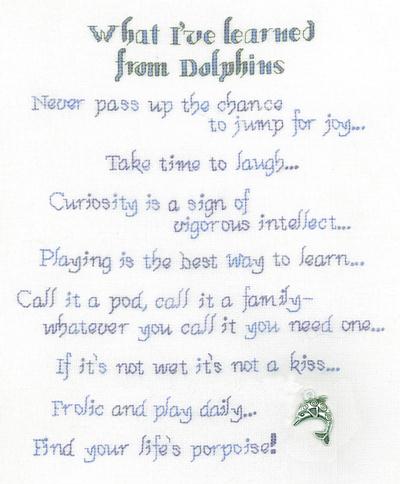 What I've learned
from Dolphins
Never pass up the chance
to jump for joy...
Take time to laugh...
Curiosity is a sign of
vigorous intellect...
Playing is the best way to learn...
Call it a pod, call it a family-
whatever you call it you need one...
If it's not wet it's not a kiss...
Frolic and play daily...
Find your life's porpoise!